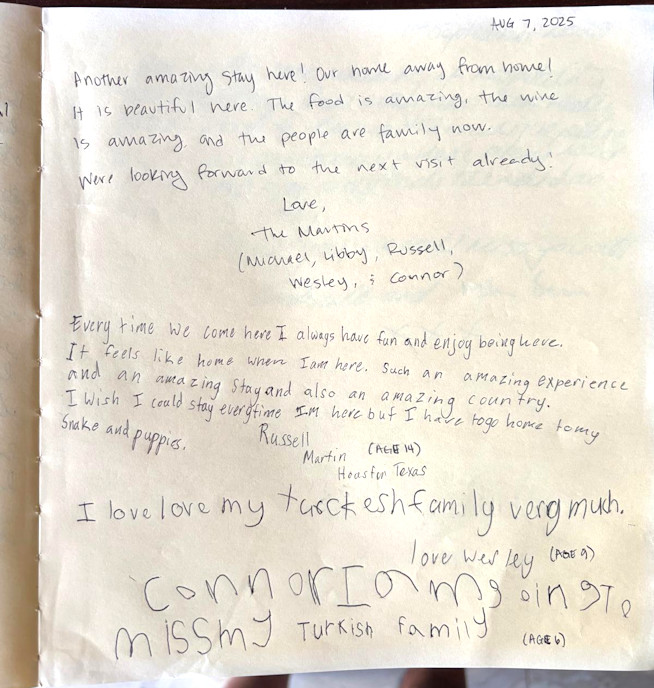 AUG 7, 2025
Another amazing stay here! Our home away from home!
It is beautiful here. The food is amazing, the wine
is amazing, and the people are family now.
Were looking forward to the next visit already!
Love,
The Martins
(Michael, Libby, Russell,
Wesley, & Connor)
Every time we come here I always have fun and enjoy being here.
It feels like home when I am here. Such an amazing experience
and an amazing stay and also an amazing country.
I wish I could stay everytime I'm here but I have togo home to my
snake and puppies.
Russell
Martin (AGE 14)
Houston Texas
I love love my turckesh family very much.
love Wesley (AGE 9)
Connor I am going to
miss my Turkish family (AGE 6)